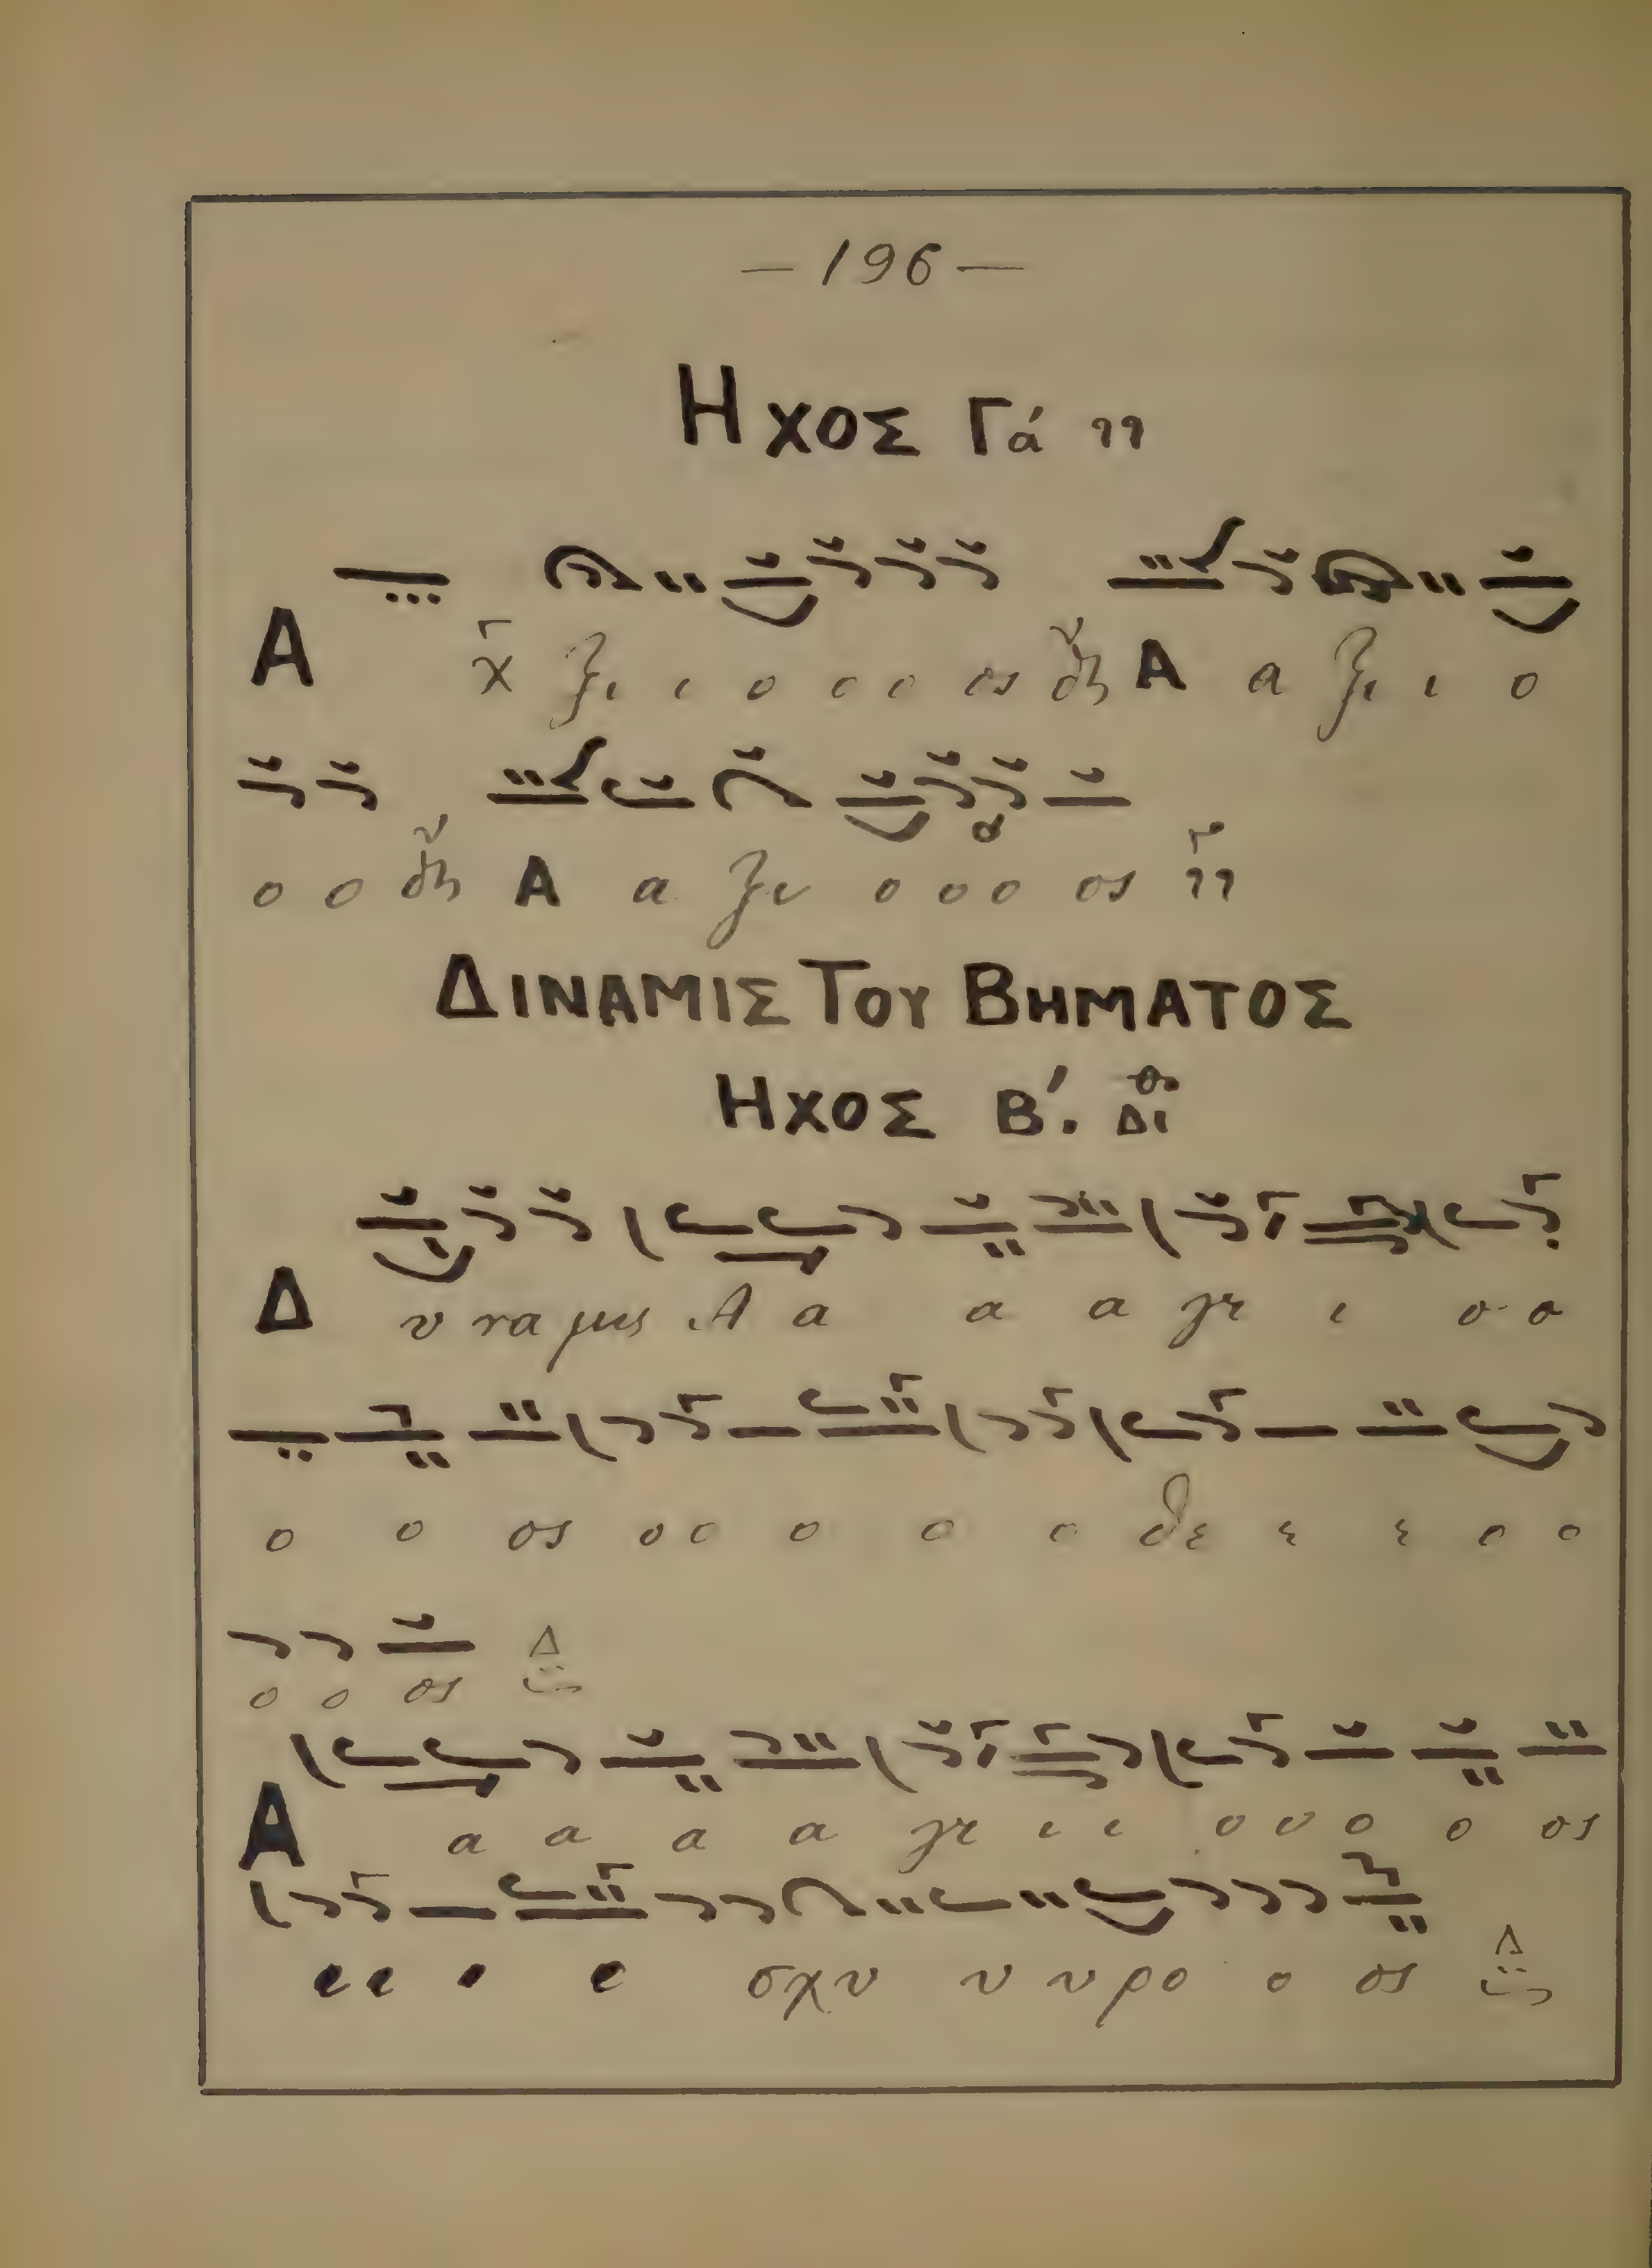 —196—
Ηχος Γά
Α ξι ι ο ο ο ος Α α ξι ι ο
ο ο Α α ξι ο ο ο ος
ΔΙΝΑΜΙΣ ΤΟΥ ΒΗΜΑΤΟΣ
ΗΧΟΣ Β΄. Δι
Δ υ να μις Α α α α γι ι ο ο
ο ο ος ο ο ο ο ο θε ε ε ο ο
ο ο ος Δ
Α α α α α γι ι ι ο ο ο ο ος
ι ι ι ι σχυ υ υ ρο ο ος Δ